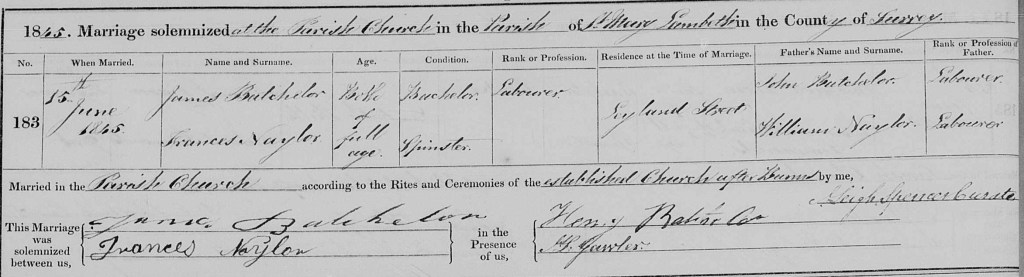 1845. Marriage solemnized at the Parish Church in the Parish of St Mary Lambeth in the County of Surrey.
No. When Married. Name and Surname. Age. Condition. Rank or Profession. Residence at the Time of Marriage. Father's Name and Surname. Rank or Profession of Father.
183
15th June 1845
James Batchelor Both of full age. Bachelor. Labourer. John Batchelor. Labourer.
Frances Naylor Spinster. Street William Naylor. Labourer
Married in the Parish Church according to the Rites and Ceremonies of the established Church after Banns by me,
Leigh Spencer Curate
This Marriage was solemnized between us,
James Batchelor
Frances Naylor
in the Presence of us,
Henry